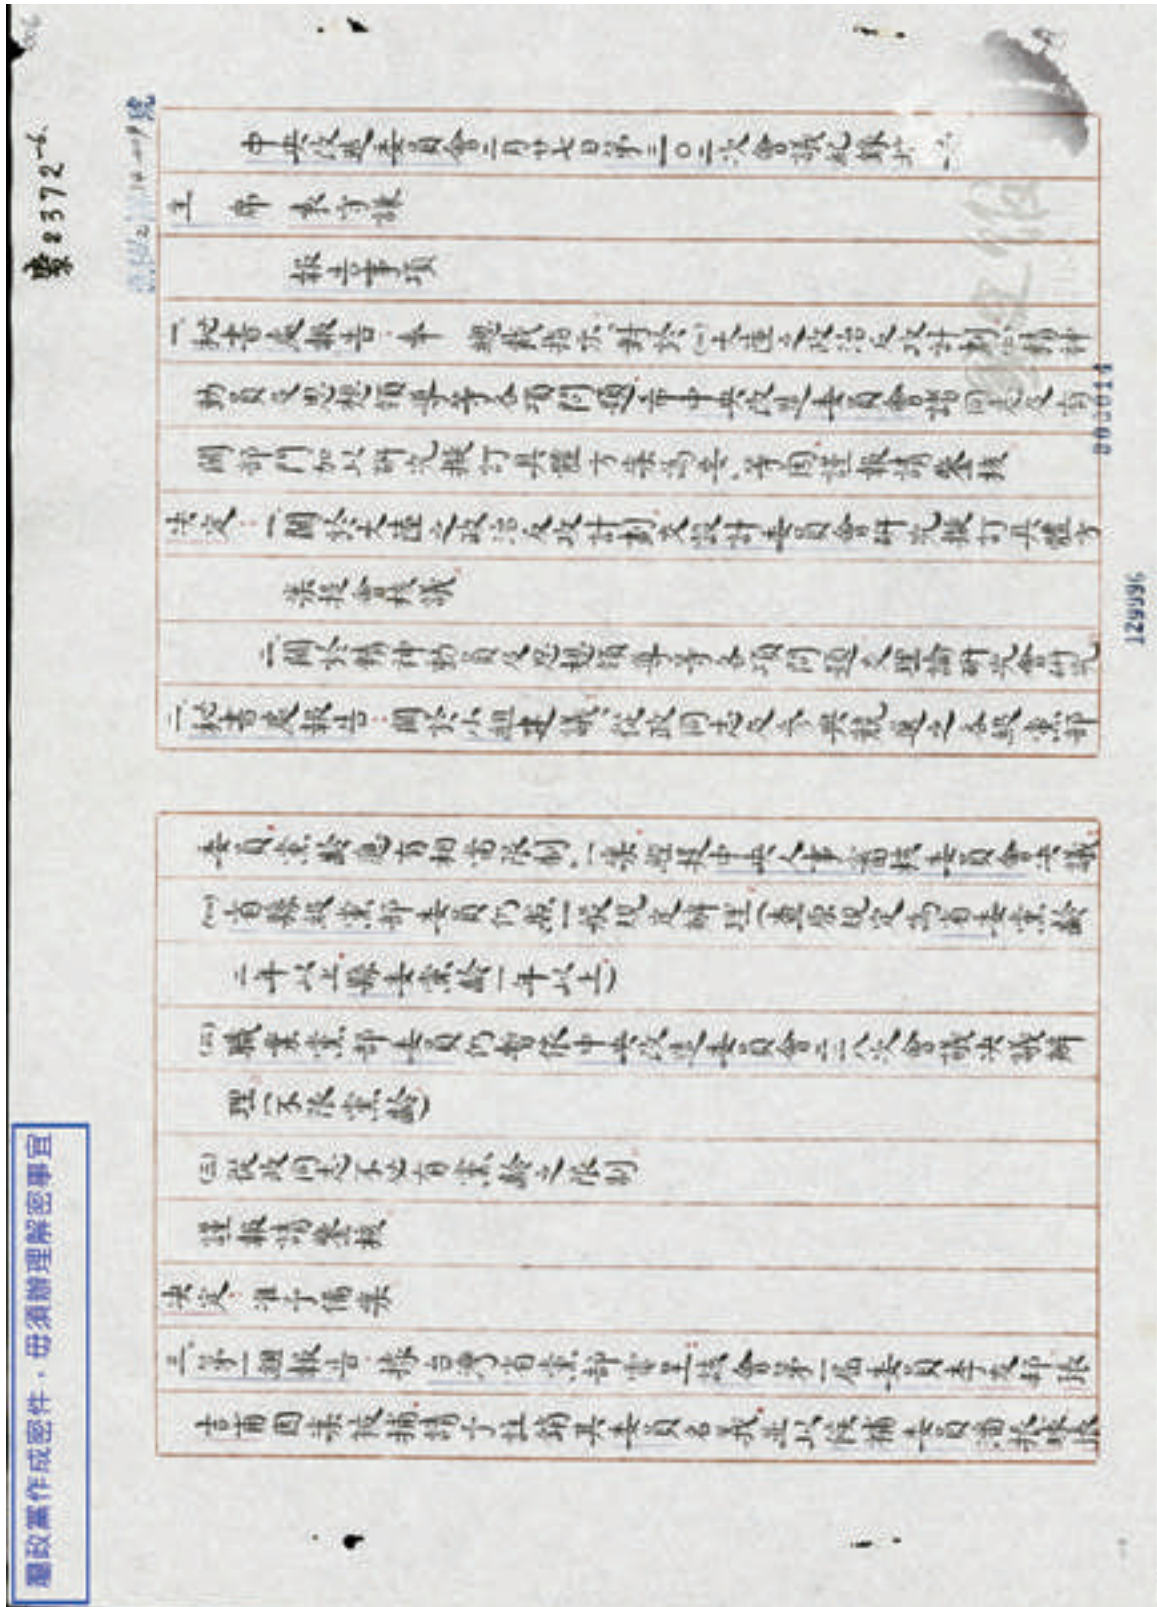 案2372-6.
號
中央改造委員會二月廿七日第三〇二次會議紀錄
主席 袁守謙
報告事項
一、秘書處報告:奉 總裁指示對於(一)大陸之政治反攻計劃(二)精神
動員及思想領導等各項問題市中央改造委員會諸同志及有
關部門加以研究擬訂具體方案為要、等因謹報請鑒核
決定:一關於大陸之政治反攻計劃交設計委員會研究擬訂具體方
案提會核議
二關於精神動員及思想領導等各項問題交理論研究會研究
二、秘書處報告:關於小組建議、從政同志及參與競選之各級黨部
委員黨齡應有相當限制、一案經提中央人事審核委員會決議
(一)省縣級黨部委員仍照一般規定辦理(查原規定為省委黨齡
二年以上縣委黨齡一年以上)
(二)職業黨部委員仍暫依中央改造委員會二二八次會議決議辦
理(不限黨齡)
(三)從政同志不必有黨齡之限制
謹報請鑒核
決定:准予備案
三、第一組報告:據台灣省黨部 第一屆委員李友邦
吉甫因案被捕請予註銷其委員名義並以候補委員
000014
129996
屬政黨作成密件,毋須辦理解密事宜